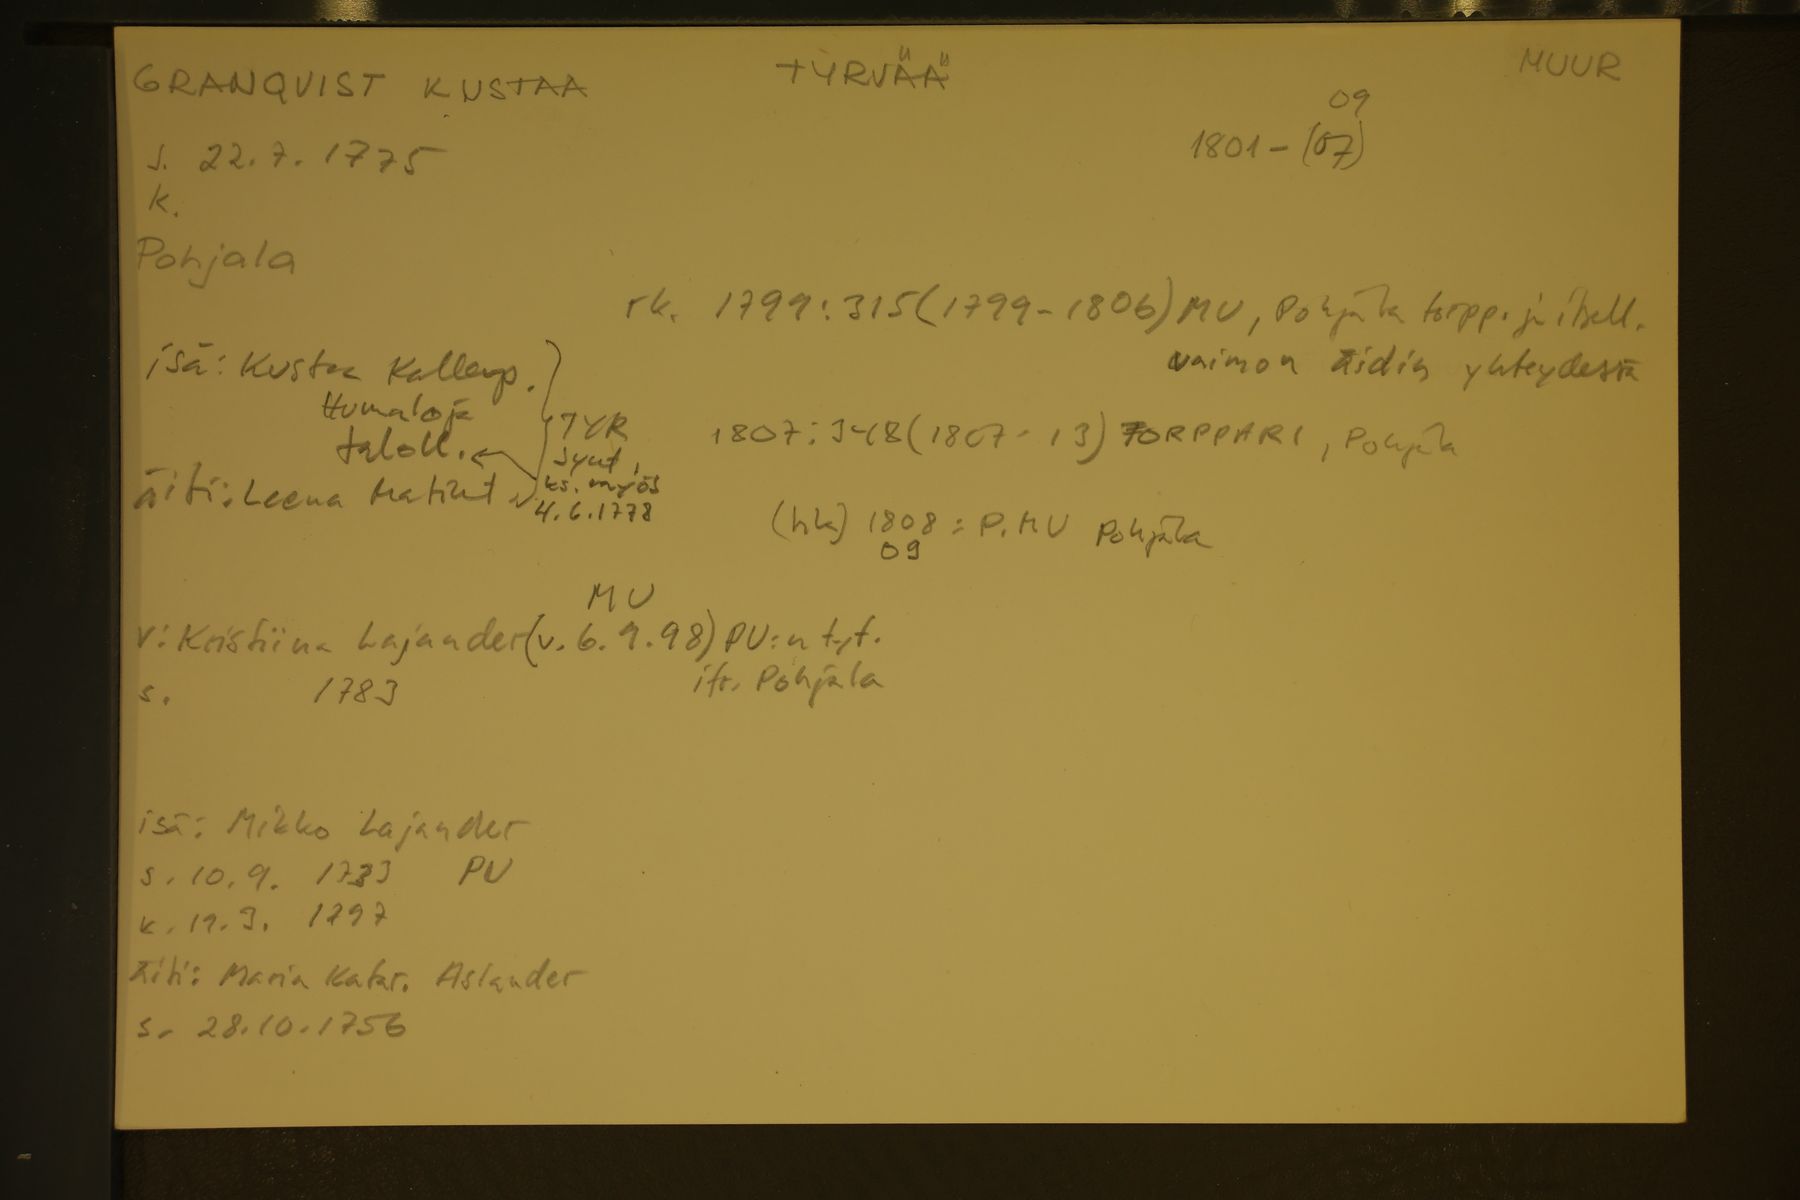 GRANQVIST KUSTAA TYRVÄÄ MUUR
s. 22.7.1775 1801-(07) 09
k.
Pohjala
rk. 1799:315(1799-1806) MU, Pohjala torpp. ja itsell.
vaimon äidin yhteydessä
isä: Kustaa Kallenp.
Humaloja
taloll.
äiti: Leena Matint
TYR
synt,
ks. myös
4.6.1778
1807:348(1807-13) TORPPARI, Pohjala
(hk) 1808 = P.MU Pohjala
09
MU
v: Kristiina Lajander (v. 6.9.98) PU:n tyt.
s. 1783 itr. Pohjala
isä: Mikko Lajander
s. 10.9. 1733 PU
k. 19.3. 1797
äiti: Maria Katar. Aslander
s. 28.10.1756